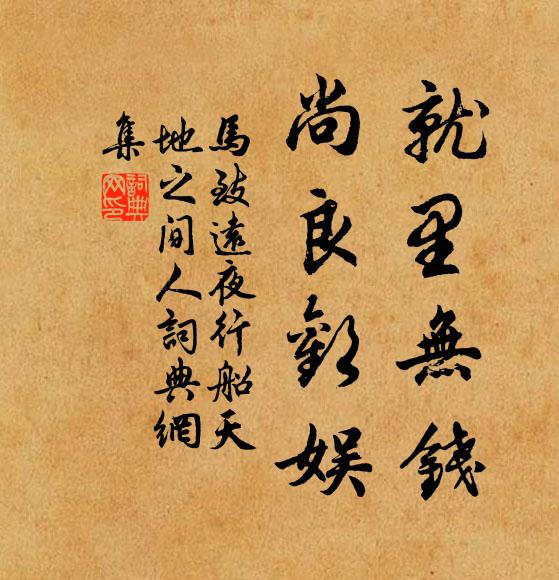 就里無錢
尚良歡娱
馬致遠夜行船天
地之间人詞典網
集
詞典
网印